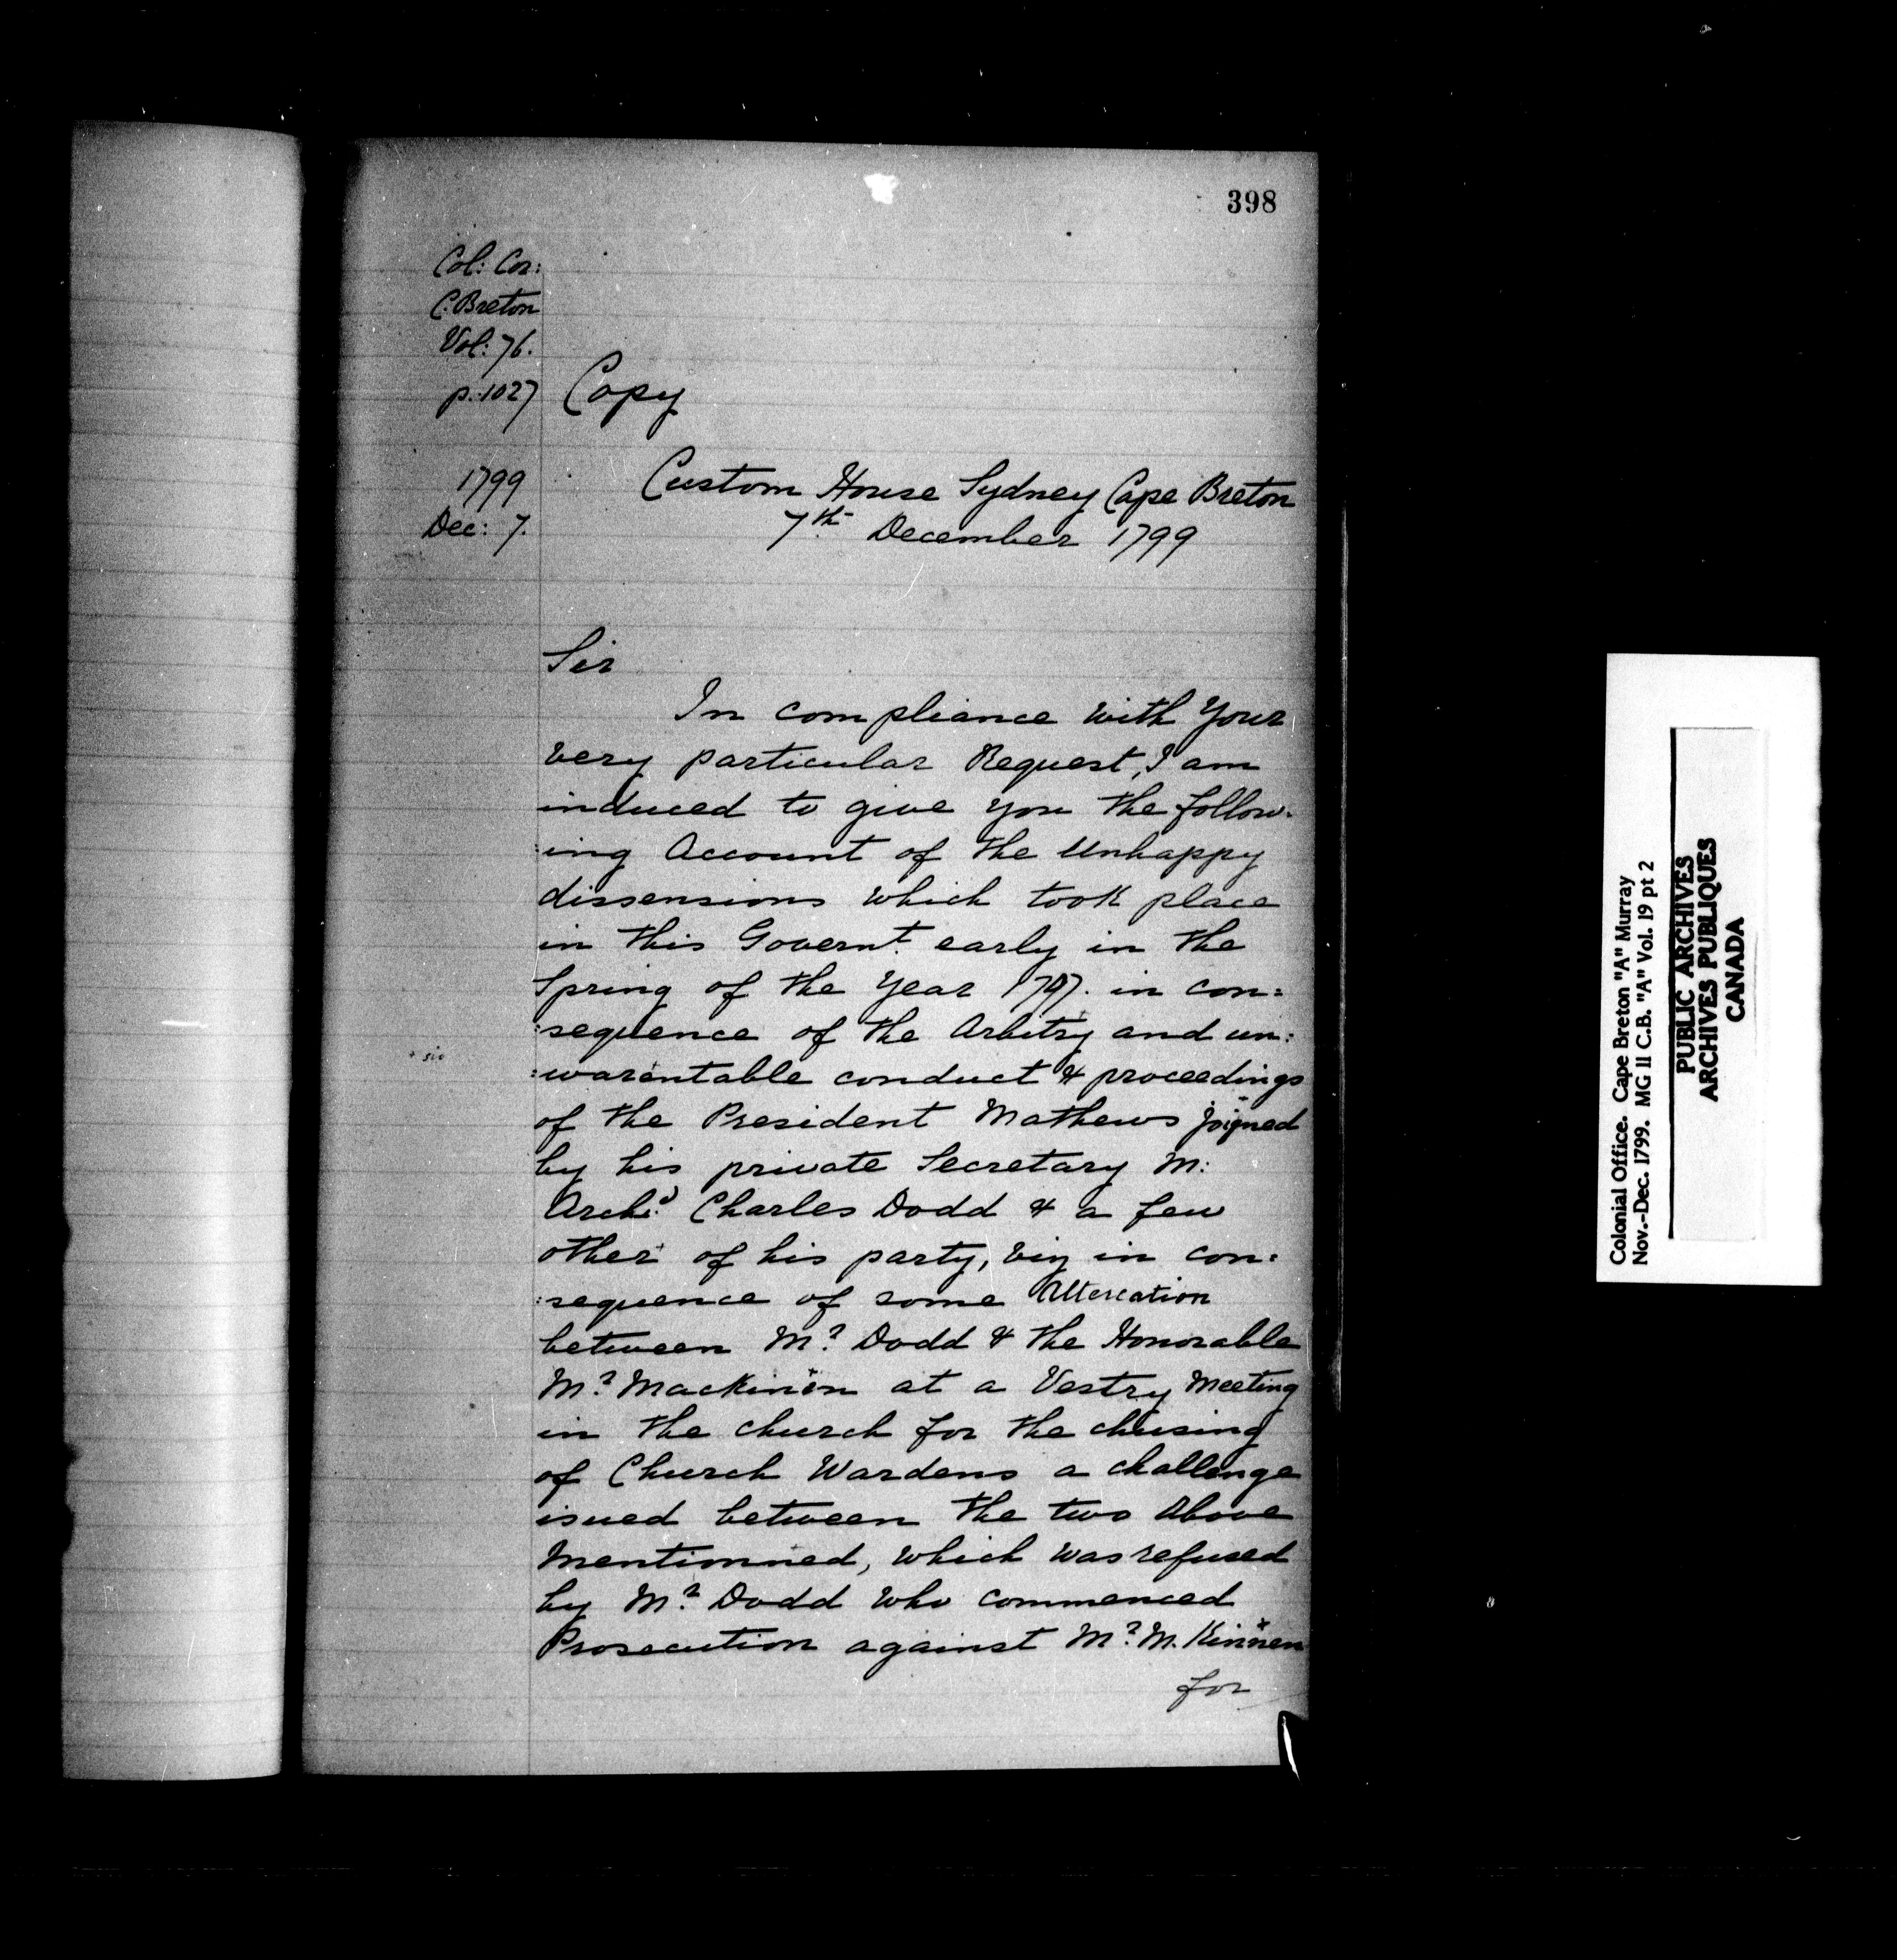 398
Col: Cor:
C. Breton
Vol: 76.
p. 1027
Copy
1799
Dec: 7.
Custom House Sydney Cape Breton
7th December 1799
Sir
In compliance with Your
very particular Request, I am
induced to give you the follow-
:ing Account of the Unhappy
dissensions which took place
in this Governt. early in the
Spring of the Year 1797. in con:
:sequence of the Arbitry and un:
+ sic
:warentable conduct & proceedings
of the President Mathews joigned
by his private Secretary M:
Archd. Charles Dodd & a few
other+ of his party, viz in con:
:sequence of some Altercation
between Mr. Dodd & the Honorable
Mr. Mackinen at a Vestry Meeting
in the church for the chusing
of Church Wardens a challenge
isued between the two above
Mentionned, which was refused
by Mr. Dodd who commenced
Prosecution against Mr. M. Kinnen
for
Colonial Office. Cape Breton "A" Murray
Nov.-Dec. 1799. MG 11 C.B. "A" Vol. 19 pt 2
PUBLIC ARCHIVES
ARCHIVES PUBLIQUES
CANADA